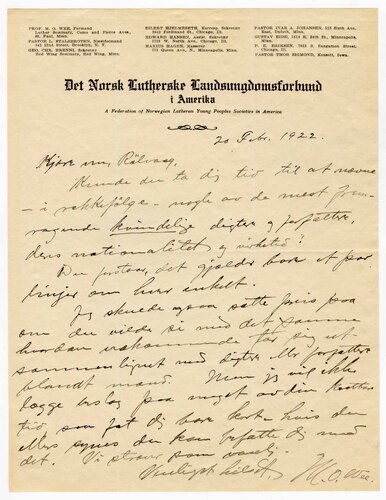 PROF. M. O. WEE, Formand
Luther Seminary, Como and Pierce Aves.,
St. Paul, Minn.
PASTOR L. STALSBROTEN, Næstformand
542 52nd Street, Brooklyn, N. Y.
GEO. CHR. BRENNI, Sekretær
Red Wing Seminary, Red Wing, Minn.
EILERT HJELMSETH, Korresp. Sekretær
Ferdinand St., Chicago, Ill.
HOWARD HANSEN, Asst. Sekretær
North Ave., Chicago, Ill.
MARIUS HAGEN, Kasserer
Queen Ave. N., Minneapolis, Minn.
PASTOR IVAR A. JOHANSEN, Sixth Ave.
East, Duluth, Minn.
GUSTAV EIDE, E. 24th St., Minneapolis,
Minn.
P. K. ERIKSEN, S. Sangamon Street,
Chicago, Ill.
PASTOR THOR SIGMOND, Kensett, Iowa.
Det Norsk Lutherske Landsungdomsforbund
i Amerika
A Federation of Norwegian Lutheran Young Peoples Societies in America
20 Febr. 1922.
Kjære ven, Rölvaag,
Kunde du ta dig tid til at nævne
– i rækkefølge – nogle av de mest frem-
ragende kvindelige digtere og forfattere,
deres nationalitet og virketid?
Du forstaar, det gjælder bare et par
linjer om hver enkelt.
Jeg skulde ogsaa sætte pris paa
om du vilde si med det samme
hvordan vedkommende tar sig ut
sammenlignet med digtere eller forfattere
blandt mænd. Men jeg vil ikke
lægge beslag paa noget av din kostbare
tid, saa fat dig bare kort – hvis du
ellers synes du kan befatte dig med
det. Vi strever som vanlig.
Venligst hilset, M. O. Wee.